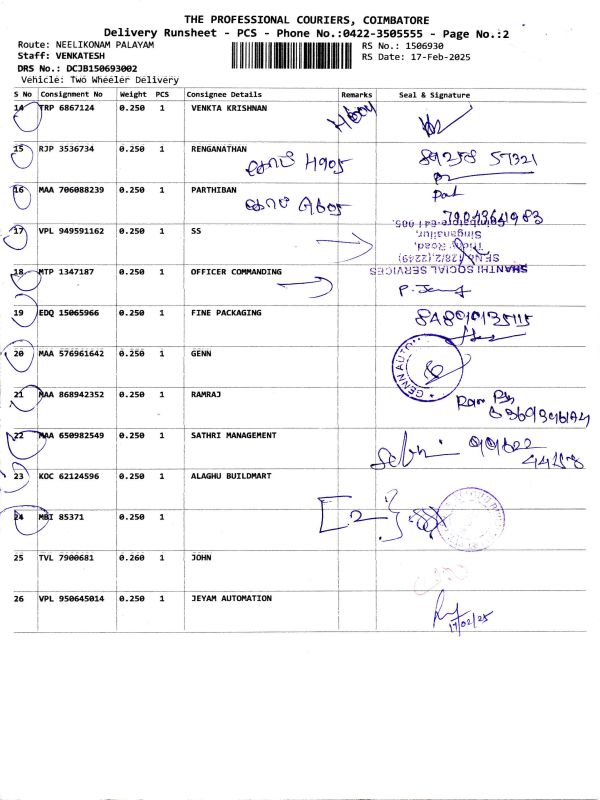 THE PROFESSIONAL COURIERS, COIMBATORE
Delivery Runsheet - PCS - Phone No.:0422-3505555 - Page No.:2
Route: NEELIKONAM PALAYAM
RS No.: 1506930
Staff: VENKATESH
RS Date: 17-Feb-2025
DRS No.: DCJB150693002
Vehicle: Two Wheeler Delivery
S No Consignment No Weight PCS Consignee Details Remarks Seal & Signature
14 TRP 6867124 0.250 1 VENKTA KRISHNAN
15 RJP 3536734 0.250 1 RENGANATHAN
89258 57321
16 MAA 706088239 0.250 1 PARTHIBAN
17 VPL 949591162 0.250 1 SS
SHANTHI SOCIAL SERVICES
Trichy Road,
Singanallur,
Coimbatore-641 005.
18 MTP 1347187 0.250 1 OFFICER COMMANDING
19 EDQ 15065966 0.250 1 FINE PACKAGING
20 MAA 576961642 0.250 1 GENN
GENN AUTO
21 MAA 868942352 0.250 1 RAMRAJ
22 MAA 650982549 0.250 1 SATHRI MANAGEMENT
23 KOC 62124596 0.250 1 ALAGHU BUILDMART
24 MBI 85371 0.250 1
2
25 TVL 7900681 0.260 1 JOHN
26 VPL 950645014 0.250 1 JEYAM AUTOMATION
17/02/25